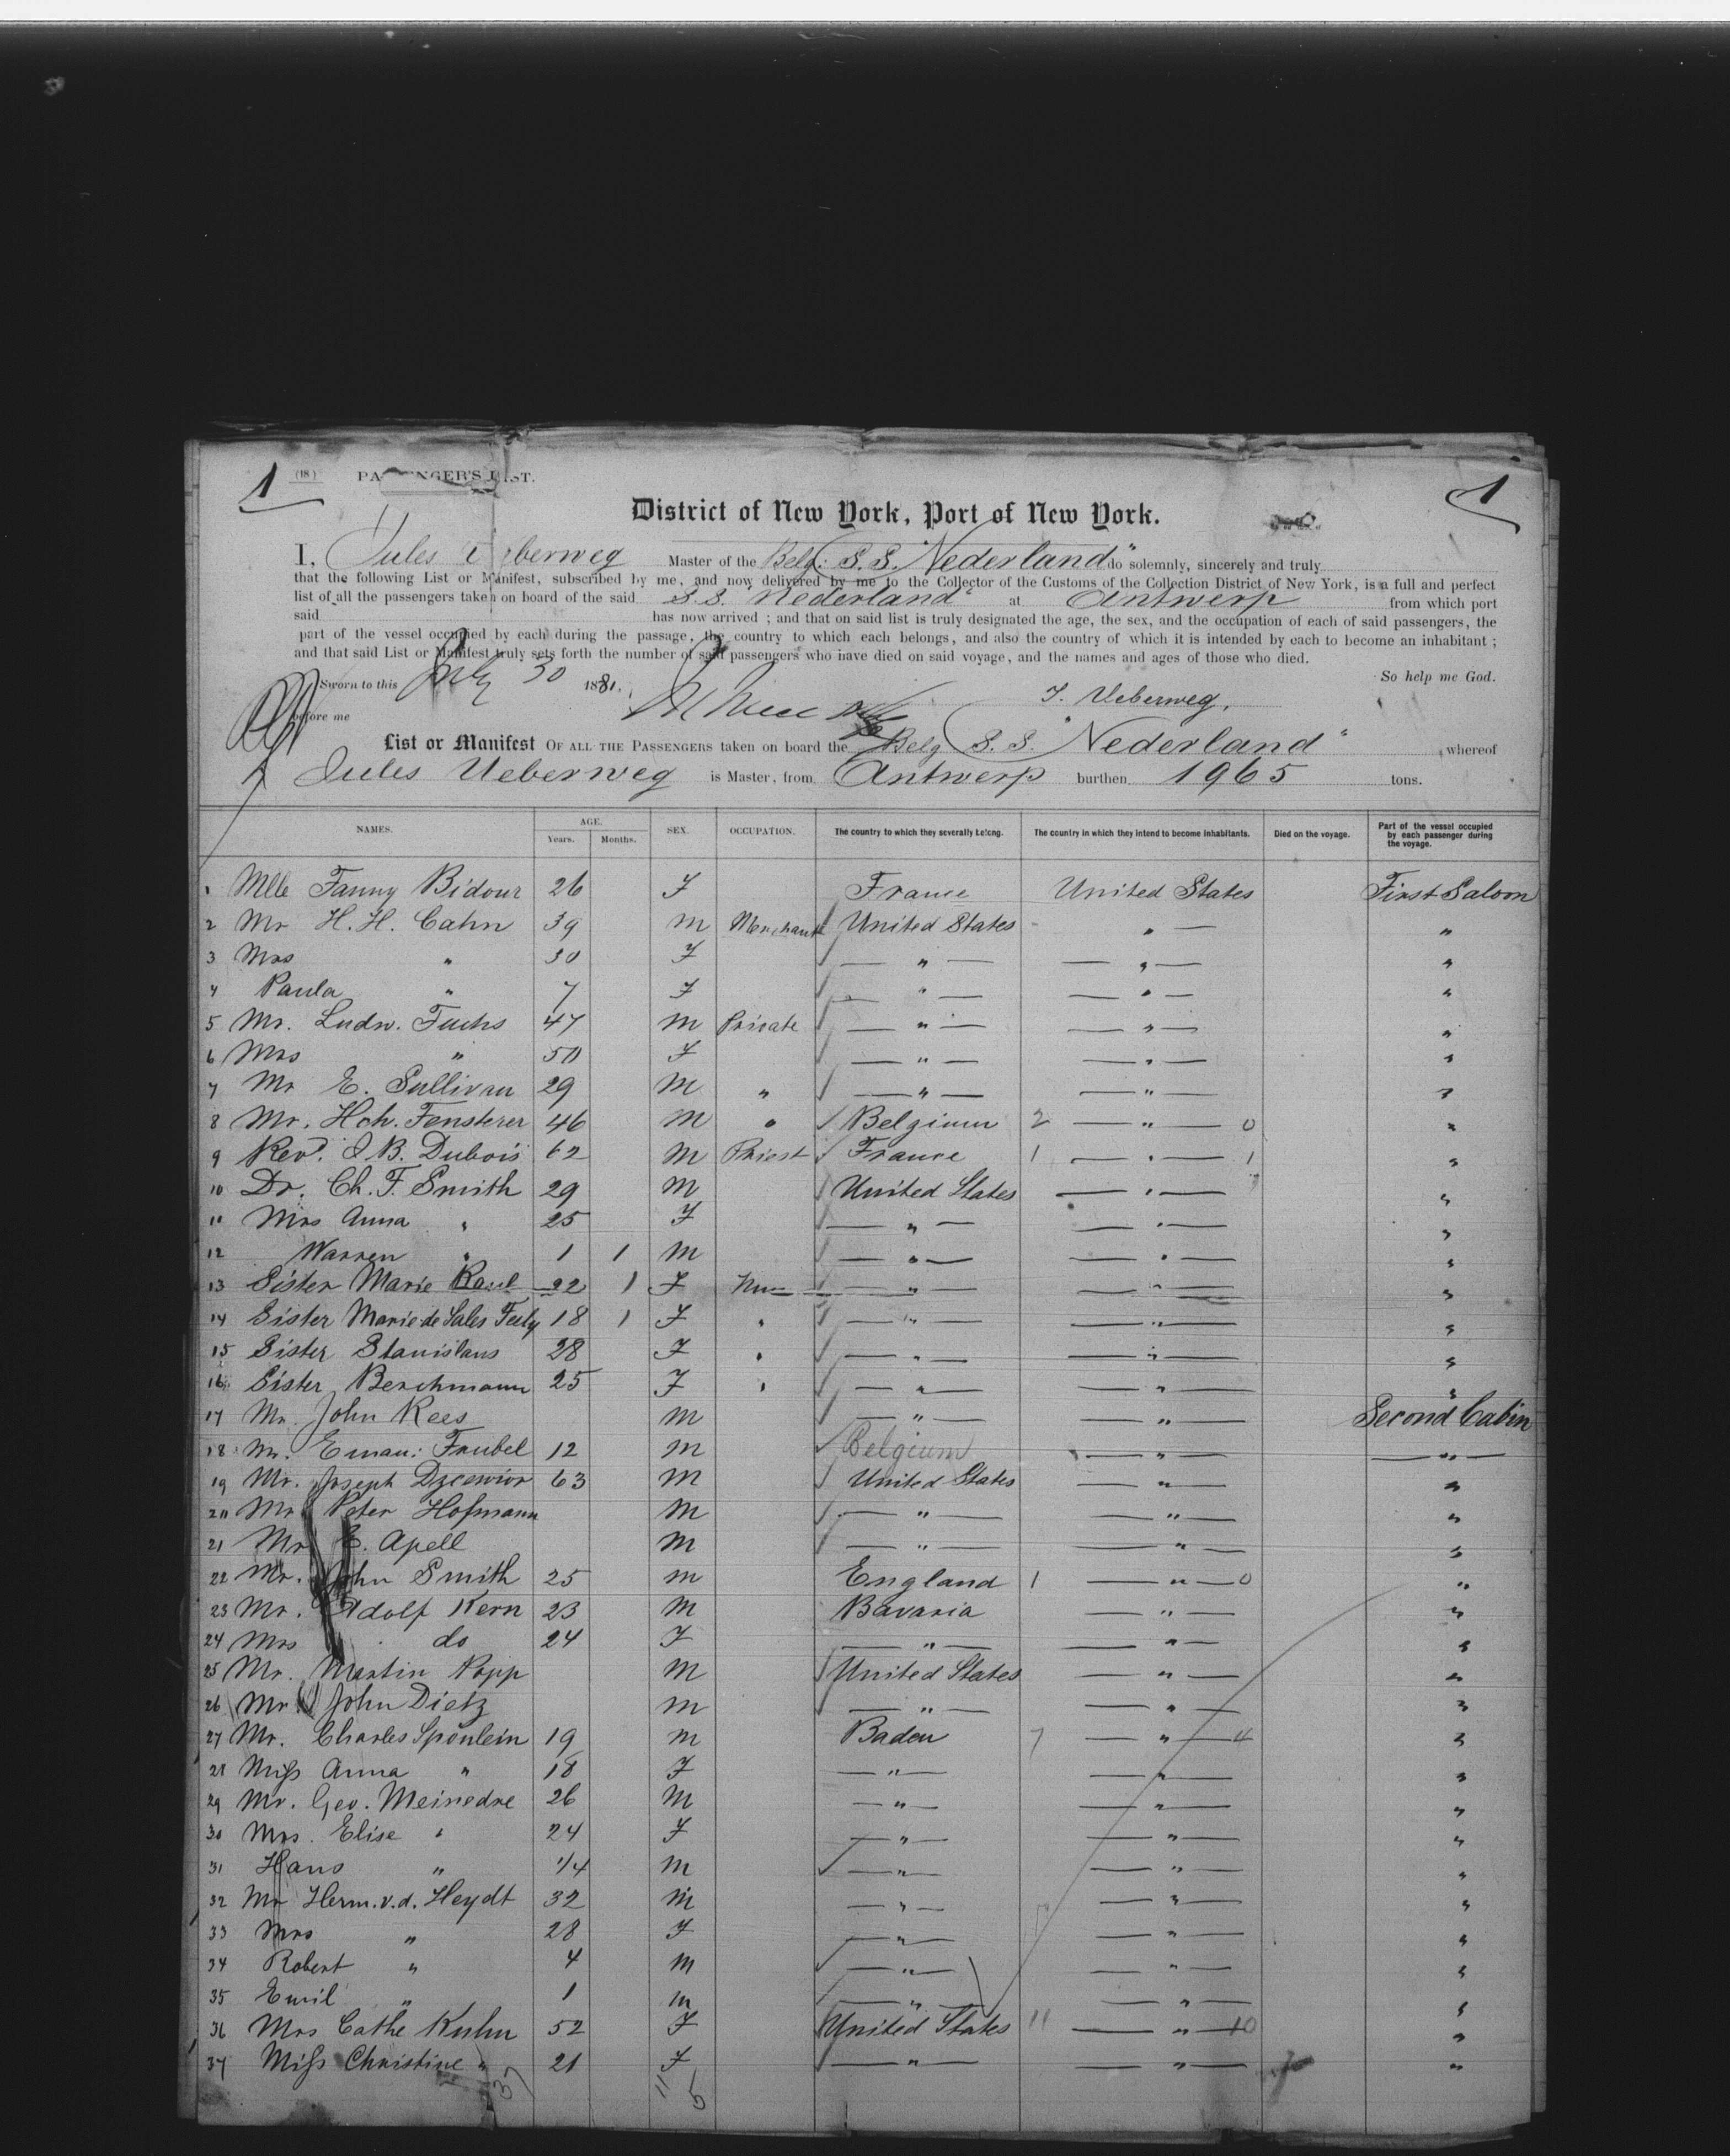 1 (18) PASSENGER'S LIST. 1
District of New York, Port of New York.
I, Jules Ueberweg Master of the Belg: S.S. "Nederland" do solemnly, sincerely and truly
that the following List or Manifest, subscribed by me, and now delivered by me to the Collector of the Customs of the Collection District of New York, is a full and perfect
list of all the passengers taken on board of the said S.S. "Nederland" at Antwerp from which port
said has now arrived ; and that on said list is truly designated the age, the sex, and the occupation of each of said passengers, the
part of the vessel occupied by each during the passage, the country to which each belongs, and also the country of which it is intended by each to become an inhabitant ;
and that said List or Manifest truly sets forth the number of said passengers who have died on said voyage, and the names and ages of those who died.
So help me God.
Sworn to this July 30 1881.
J. Ueberweg.
before me
List or Manifest OF ALL THE PASSENGERS taken on board the Belg S.S. "Nederland" whereof
Jules Ueberweg is Master, from Antwerp burthen 1965 tons.
NAMES. AGE. Years. Months. SEX. OCCUPATION. The country to which they severally belong. The country in which they intend to become inhabitants. Died on the voyage. Part of the vessel occupied by each passenger during the voyage.
1 Mlle Fanny Bidour 26 F France United States First Saloon
2 Mr H. H. Cahn 39 M Merchant United States " "
3 Mrs " 30 F " " "
4 Paula " 7 F " " "
5 Mr. Ludw. Fuchs 47 M Private " " "
6 Mrs " 50 F " " "
7 Mr E. Sullivan 29 M " " " "
8 Mr. Hch. Fensterer 46 M " Belgium 2 " 0 "
9 Rev. J B. Dubois 62 M Priest France 1 " 1 "
10 Dr. Ch. F. Smith 29 M United States " "
11 Mrs Anna " 25 F " " "
12 Warren " 1 1 M " " "
13 Sister Marie 22 1 F Nun " " "
14 Sister Marie de Sales 18 1 F " " " "
15 Sister Stanislaus 28 F " " " "
16 Sister Berchmann 25 F " " " "
17 Mr. John Rees M " " Second Cabin
18 Mr. Eman: Frubel 12 M Belgium " "
19 Mr. Joseph 63 M United States " "
20 Mr Peter Hofmann M " " "
21 Mr E. Apell M " " "
22 Mr. John Smith 25 M England 1 " 0 "
23 Mr. Adolf Kern 23 M Bavaria " "
24 Mrs do 24 F " " "
25 Mr. Martin Popp M United States " "
26 Mr John Dietz M " " "
27 Mr. Charles Spönlein 19 M Baden 7 " 4 "
28 Miss Anna " 18 F " " "
29 Mr. Geo. Meinedre 26 M " " "
30 Mrs. Elise " 24 F " " "
31 Hans " 1/4 M " " "
32 Mr Herm. v. d. Heydt 32 M " " "
33 Mrs " 28 F " " "
34 Robert " 4 M " " "
35 Emil " 1 M " " "
36 Mrs Cathe Kuhn 52 F United States 11 " 10 "
37 Miss Christine " 21 F " " "
37 11 5